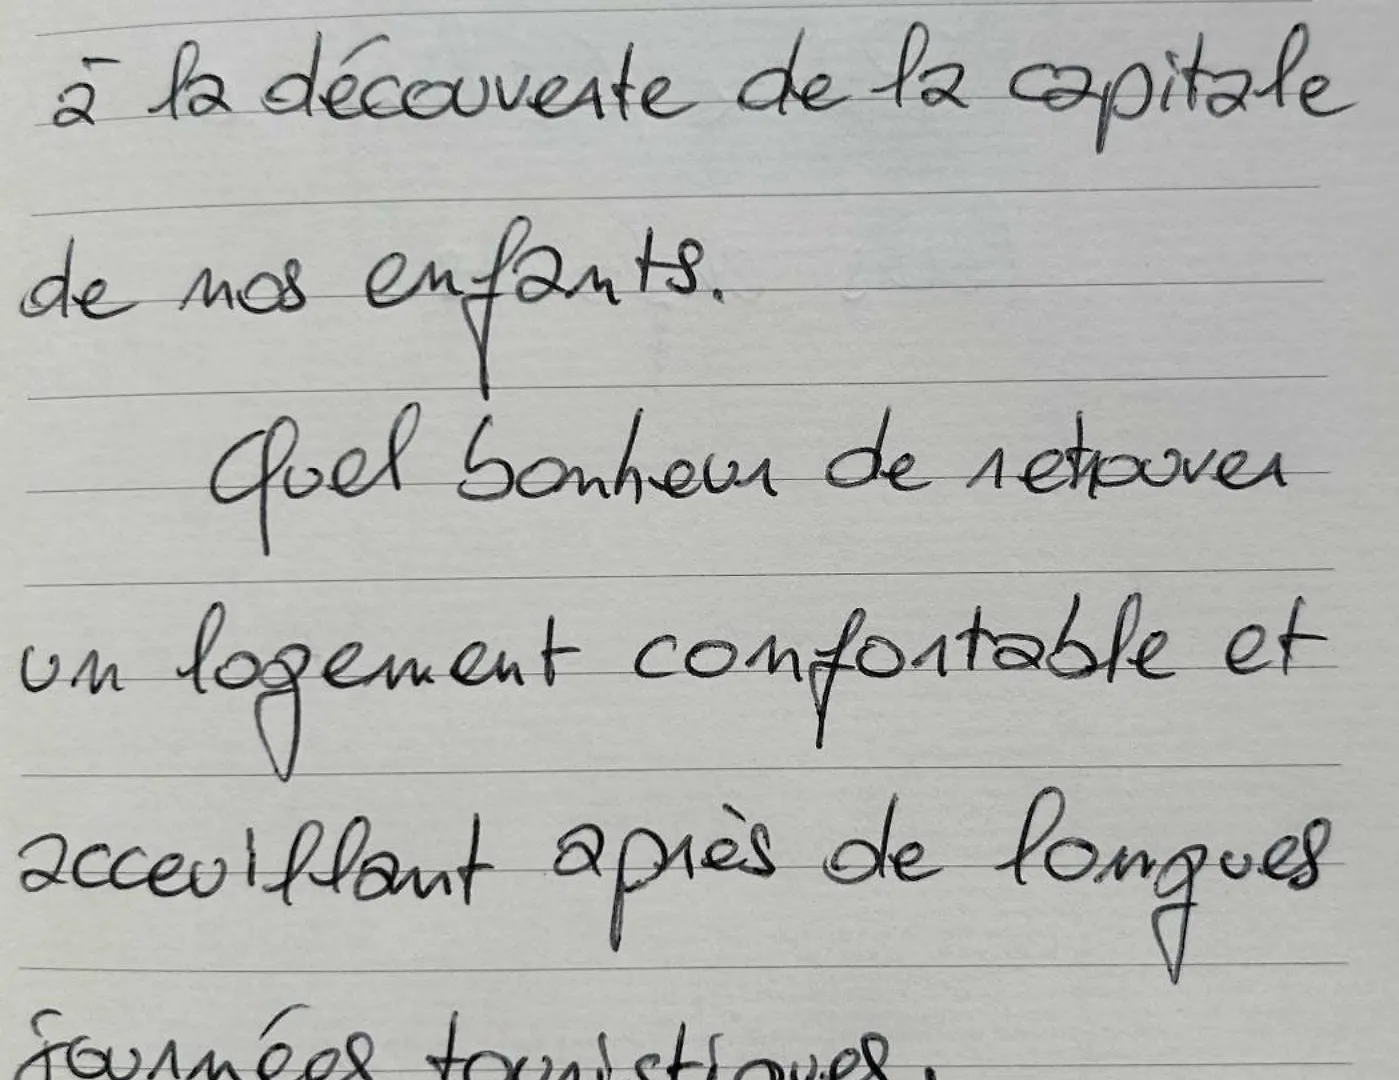 à la découverte de la capitale
de nos enfants.
Quel bonheur de retrouver
un logement confortable et
acceuillant après de longues
journées touristiques.